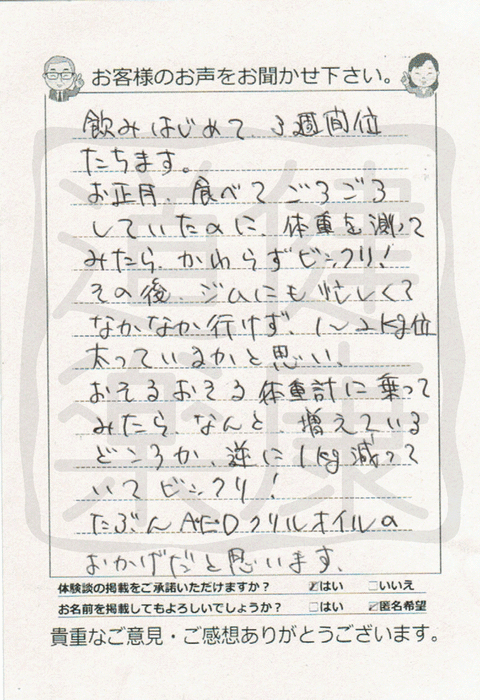 お客様のお声をお聞かせ下さい。
飲みはじめて、3週間位
たちます。
お正月、食べてごろごろ
していたのに、体重を測って
みたら、かわらずビックリ!
その後、ジムにも忙しくて
なかなか行けず、1～2kg位
太っているかと思い、
おそるおそる体重計に乗って
みたら、なんと、増えている
どころか、逆に1kg減って
いてビックリ!
たぶんAEDクリルオイルの
おかげだと思います。
体験談の掲載をご承諾いただけますか? ☑はい □いいえ
お名前を掲載してもよろしいでしょうか? □はい ☑匿名希望
貴重なご意見・ご感想ありがとうございます。
道健
楽康